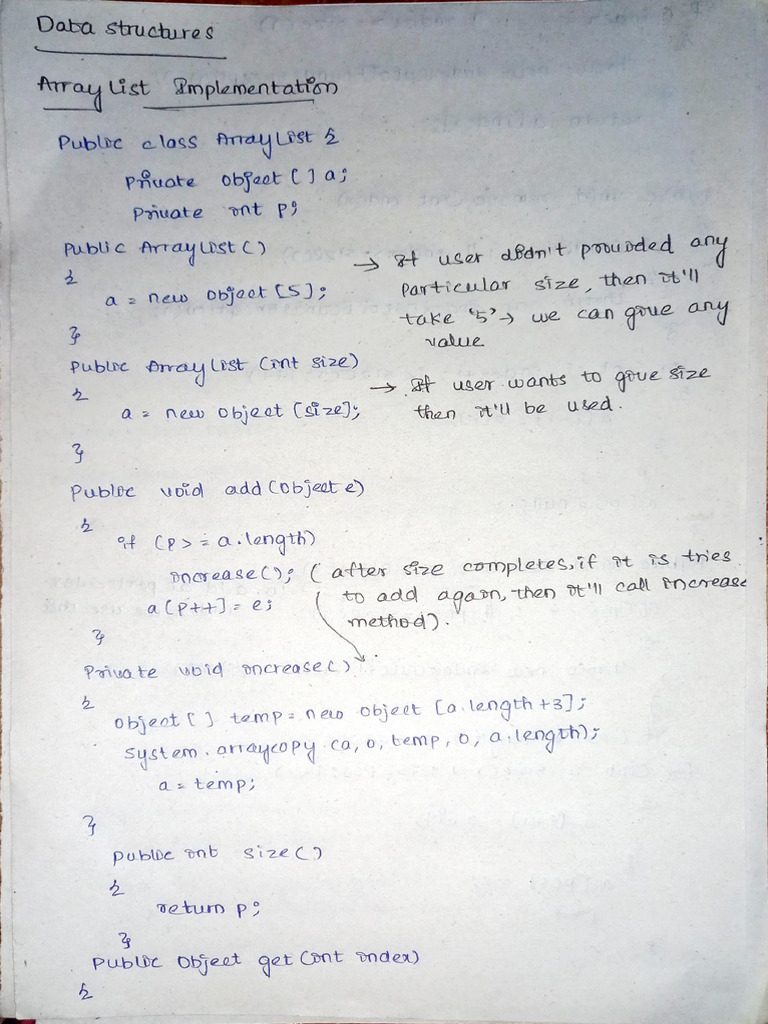 Data structures
ArrayList Implementation
Public class ArrayList {
Private Object [ ] a;
Private int p;
Public ArrayList ( )
{
a = new Object [5];
}
→ If user didn't provided any
particular size, then it'll
take '5' → we can give any
value
Public ArrayList (int size)
{
a = new Object [size];
}
→ If user wants to give size
then it'll be used.
Public void add (Object e)
{
if (p >= a.length)
increase(); ( after size completes, if it is tries
a [p++] = e; to add again, then it'll call increase
} method).
Private void increase()
{
Object [ ] temp = new Object [a.length +3];
System. arraycopy (a, 0, temp, 0, a.length);
a = temp;
}
Public int size ( )
{
return p;
}
Public Object get (int index)
{